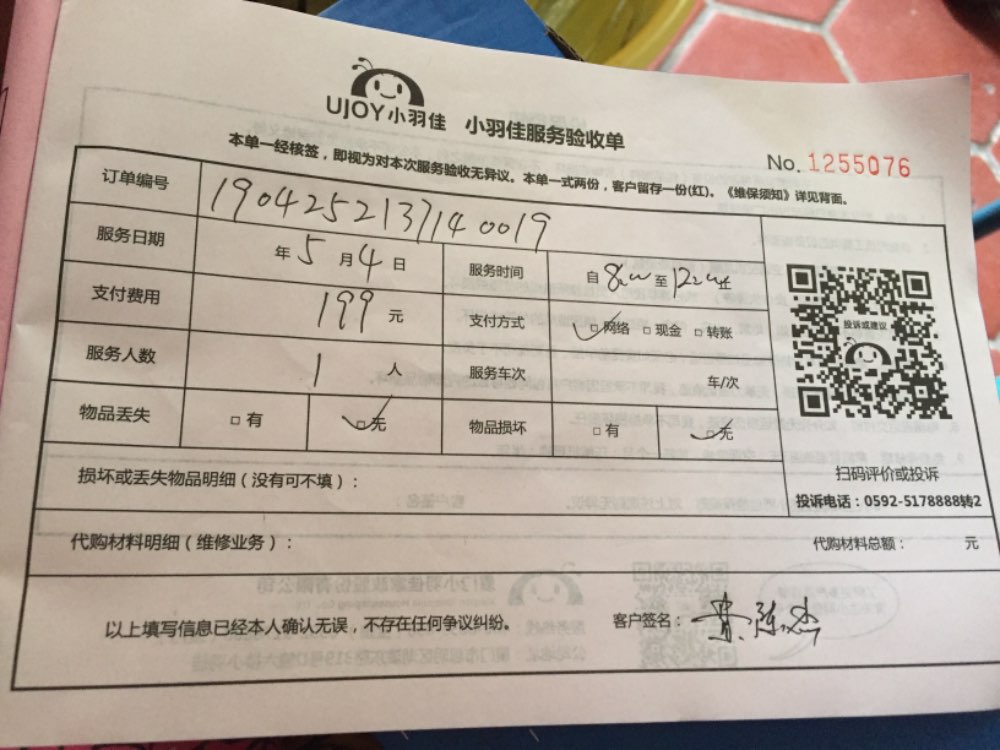 UJOY小羽佳 小羽佳服务验收单
No. 1255076
本单一经核签，即视为对本次服务验收无异议。本单一式两份，客户留存一份(红)。《维保须知》详见背面。
订单编号 190425213714 0019
服务日期 年 5 月 4 日 服务时间 自 8:00 至 12:00 止
支付费用 199 元 支付方式 □网络 □现金 □转账
服务人数 1 人 服务车次 车/次
物品丢失 □有 □无 物品损坏 □有 □无
投诉或建议
扫码评价或投诉
投诉电话：0592-5178888转2
损坏或丢失物品明细（没有可不填）：
代购材料明细（维修业务）： 代购材料总额： 元
以上填写信息已经本人确认无误，不存在任何争议纠纷。 客户签名：